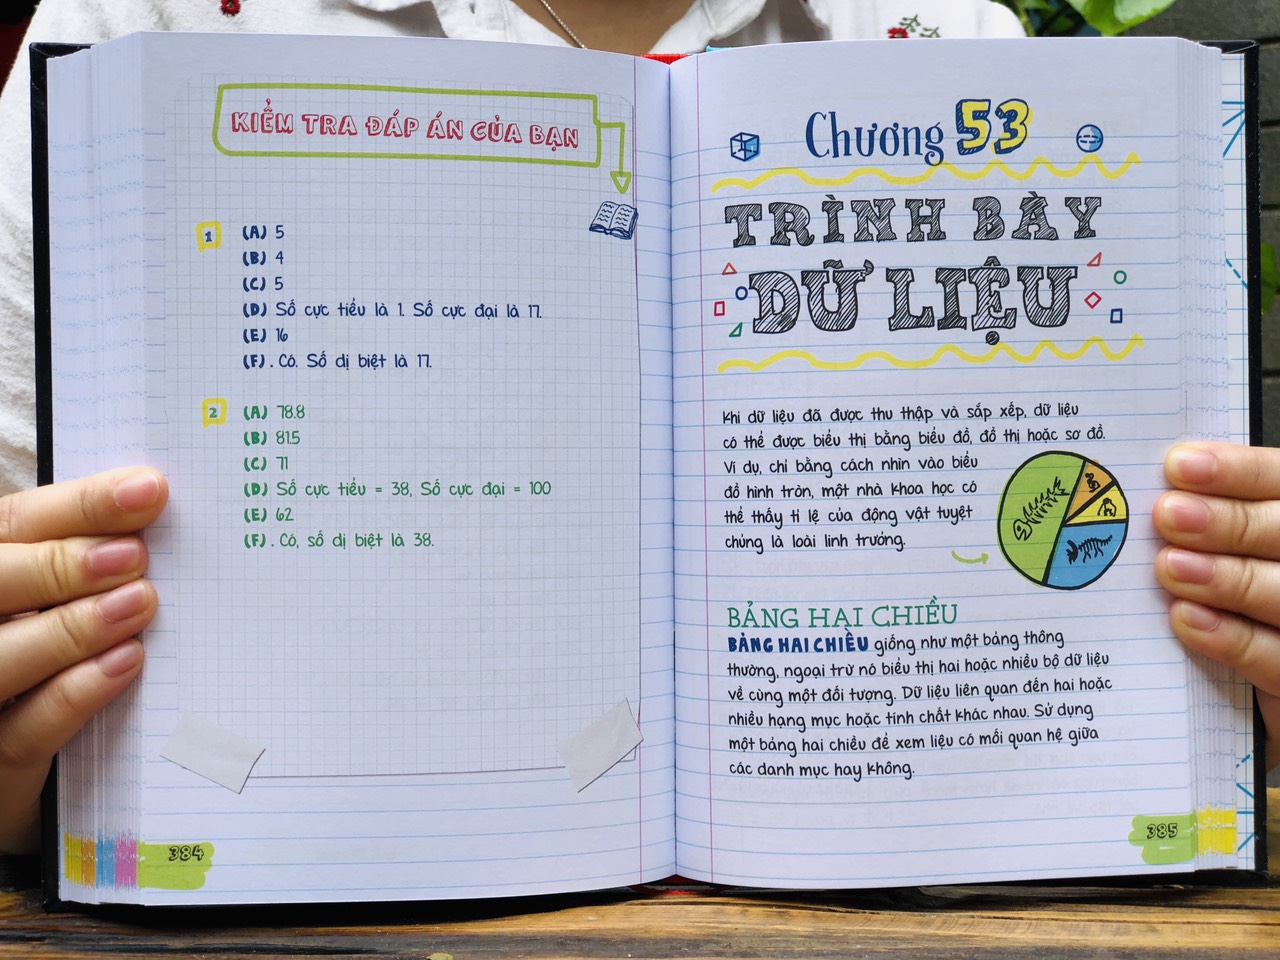 KIỂM TRA ĐÁP ÁN CỦA BẠN
1 (A) 5
(B) 4
(C) 5
(D) Số cực tiểu là 1. Số cực đại là 17.
(E) 16
(F). Có. Số dị biệt là 17.
2 (A) 78.8
(B) 81.5
(C) 71
(D) Số cực tiểu = 38, Số cực đại = 100
(E) 62
(F). Có, số dị biệt là 38.
384
Chương 53
TRÌNH BÀY
DỮ LIỆU
Khi dữ liệu đã được thu thập và sắp xếp, dữ liệu
có thể được biểu thị bằng biểu đồ, đồ thị hoặc sơ đồ.
Ví dụ, chỉ bằng cách nhìn vào biểu
đồ hình tròn, một nhà khoa học có
thể thấy tỉ lệ của động vật tuyệt
chủng là loài linh trưởng.
BẢNG HAI CHIỀU
BẢNG HAI CHIỀU giống như một bảng thông
thường, ngoại trừ nó biểu thị hai hoặc nhiều bộ dữ liệu
về cùng một đối tượng. Dữ liệu liên quan đến hai hoặc
nhiều hạng mục hoặc tính chất khác nhau. Sử dụng
một bảng hai chiều để xem liệu có mối quan hệ giữa
các danh mục hay không.
385